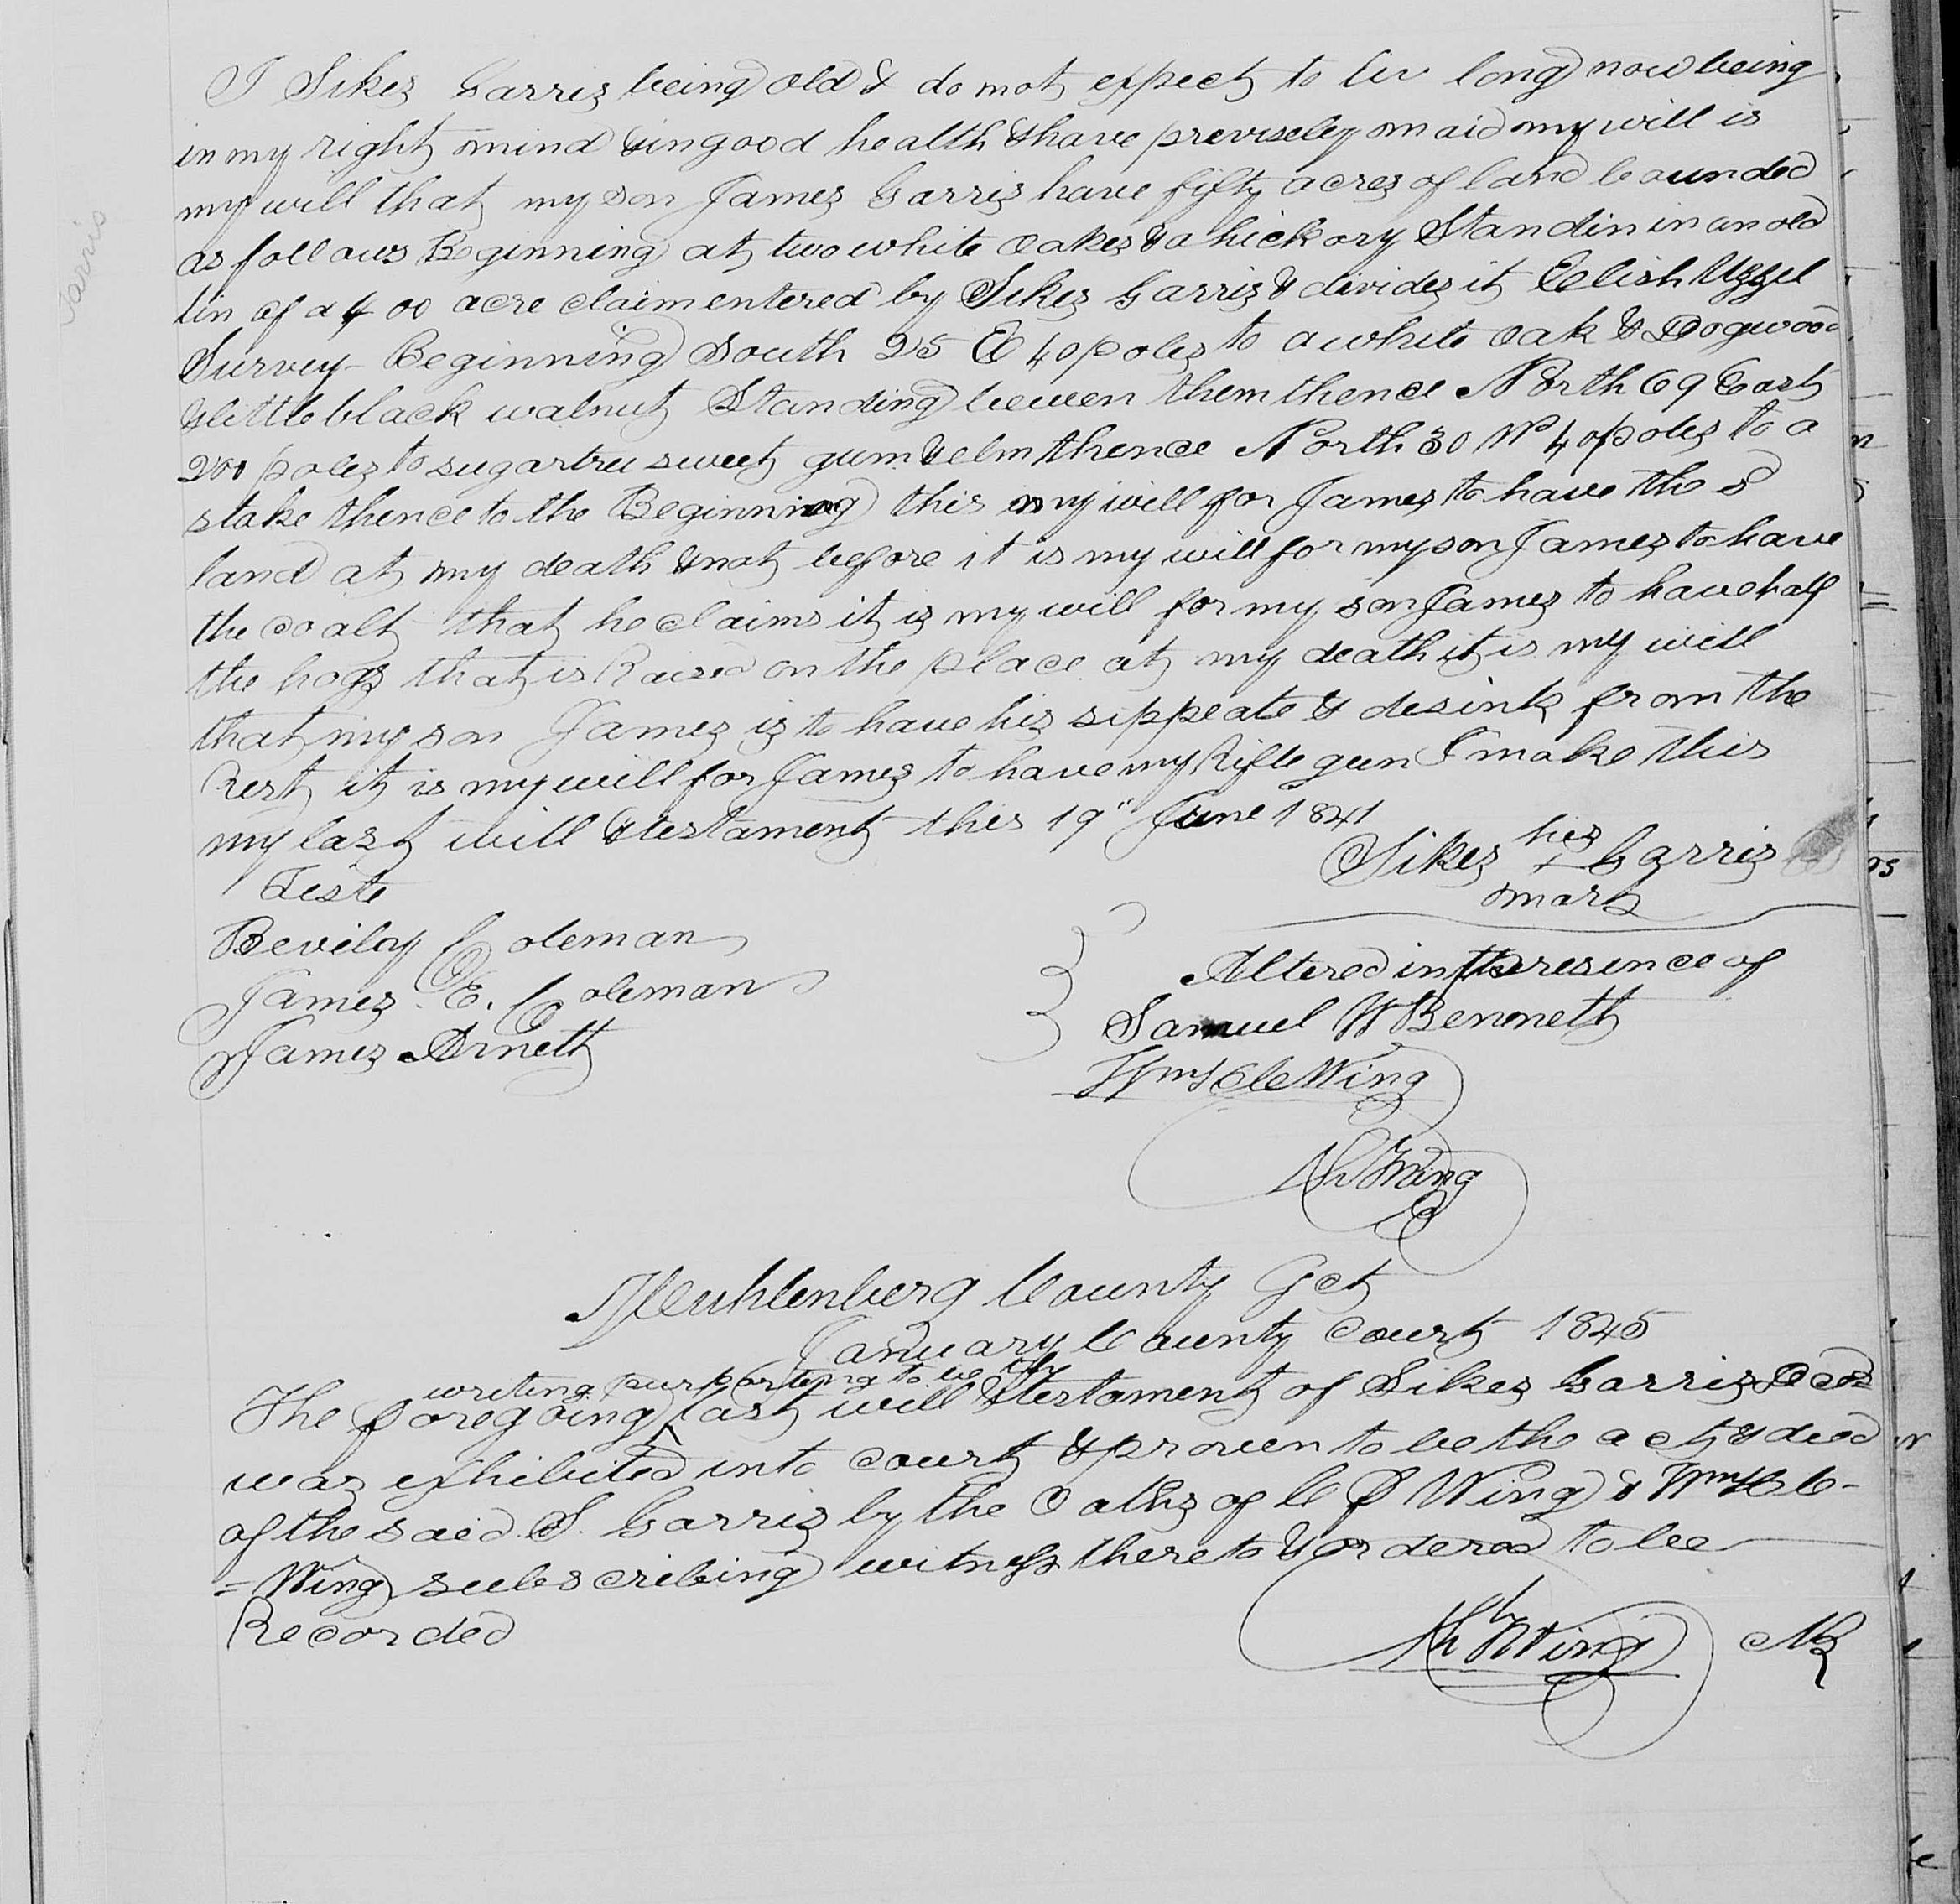 Garris
I Sikes Garris being old & do not expect to liv long now being
in my right mind & in good health & have previseley maid my will is
my will that my son James Garris have fifty acres of land bounded
as follows Beginning at two white oakes & a hickory Standin in an old
lin of a 400 acre claim entered by Sikes Garris & divides it Elish Uzzel
Survey - Beginning South 25 E 40 poles to a white oak & Dogwood
& little black walnut Standing beween them thence North 69 East
200 poles to sugartree sweet gum & elm thence North 30 W 40 poles to a
stake thence to the Beginning this is my will for James to have the sd
land at my death & not before it is my will for my son James to have
the coalt that he claims it is my will for my son James to have half
the hogs that is Raised on the place at my death it is my will
that my son James is to have his sippeate & desink from the
Rest it is my will for James to have my Rifle gun I make this
my last will & testament this 19" June 1841
Sikes his x mark Garris
Teste
Bevily Coleman
James E. Coleman
James Arnett
Altered in the presence of
Samuel W Bennett
Wm H C Wing
Wing
Muhlenberg County Sct
January County Court 1845
writing purporting to be the
The foregoing ^ last will & testament of Sikes Garris Decd
was exhibited into court & proven to be the act & deed
of the said S. Garris by the Oaths of C F Wing & Wm H C -
= Wing subscribing witness thereto & ordered to be
Recorded
Wing